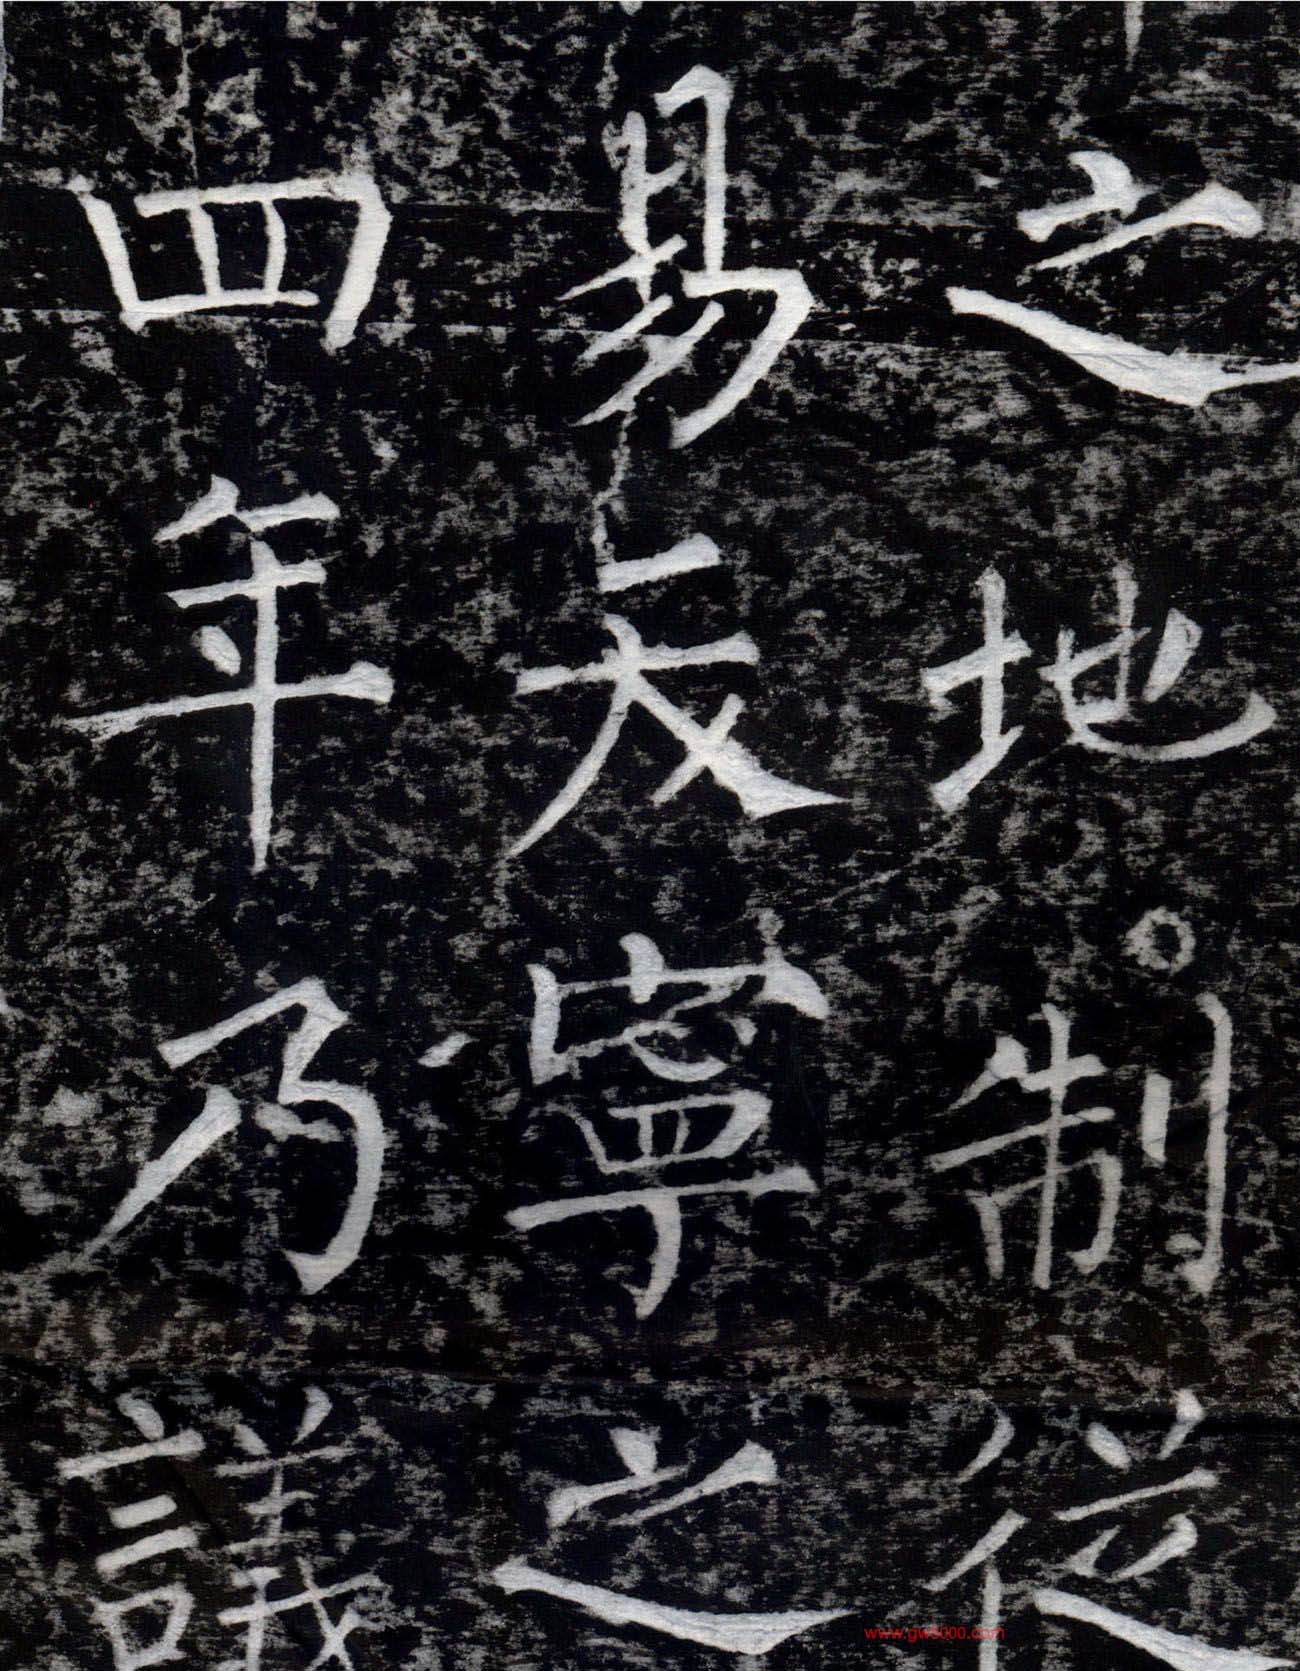 之地制從
易寧之
四年乃議
www.gw5000.com